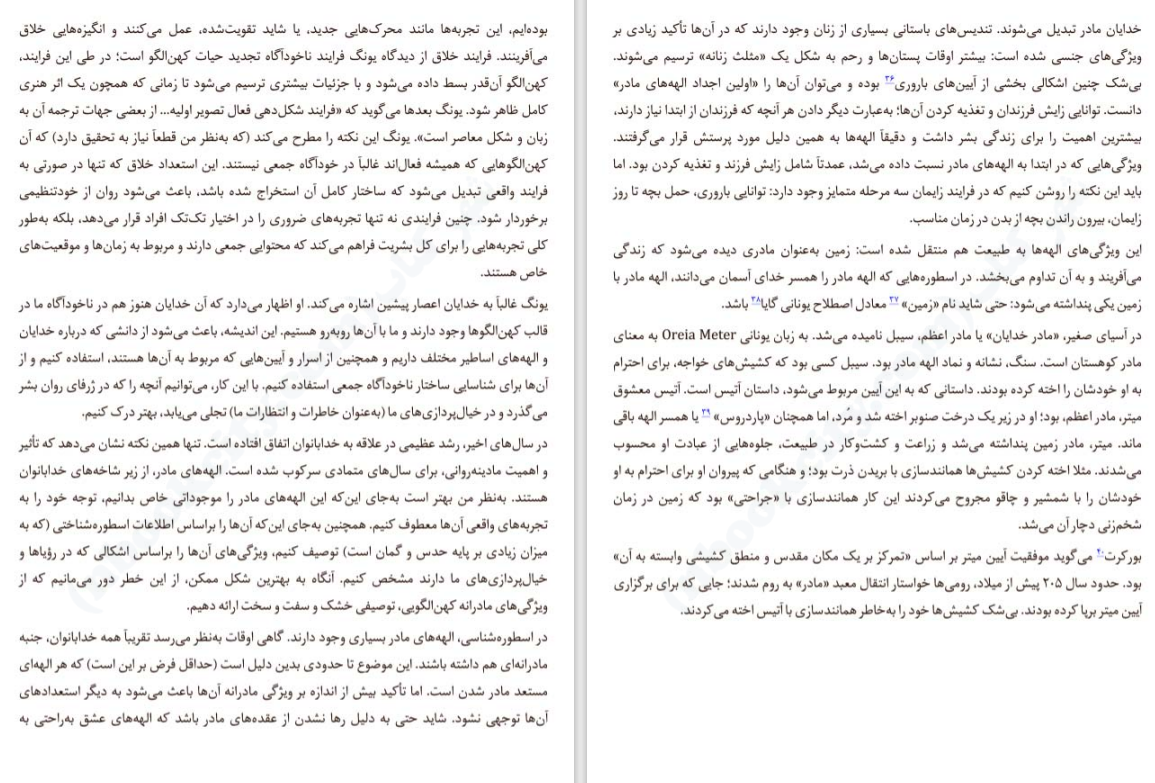 بوده‌ایم، این تجربه‌ها مانند محرک‌هایی جدید، یا شاید تقویت‌شده، عمل می‌کنند و انگیزه‌هایی خلاق
می‌آفرینند. فرایند خلاق از دیدگاه یونگ فرایند ناخودآگاه تجدید حیات کهن‌الگو است؛ در طی این فرایند،
کهن‌الگو آن‌قدر بسط داده می‌شود و با جزئیات بیشتری ترسیم می‌شود تا زمانی که همچون یک اثر هنری
کامل ظاهر شود. یونگ بعدها می‌گوید که «فرایند شکل‌دهی فعال تصویر اولیه... از بعضی جهات ترجمه آن به
زبان و شکل معاصر است». یونگ این نکته را مطرح می‌کند (که به‌نظر من قطعاً نیاز به تحقیق دارد) که آن
کهن‌الگوهایی که همیشه فعال‌اند غالباً در خودآگاه جمعی نیستند. این استعداد خلاق که تنها در صورتی به
فرایند واقعی تبدیل می‌شود که ساختار کامل آن استخراج شده باشد، باعث می‌شود روان از خودتنظیمی
برخوردار شود. چنین فرایندی نه تنها تجربه‌های ضروری را در اختیار تک‌تک افراد قرار می‌دهد، بلکه به‌طور
کلی تجربه‌هایی را برای کل بشریت فراهم می‌کند که محتوایی جمعی دارند و مربوط به زمان‌ها و موقعیت‌های
خاص هستند.
یونگ غالباً به خدایان اعصار پیشین اشاره می‌کند. او اظهار می‌دارد که آن خدایان هنوز هم در ناخودآگاه ما در
قالب کهن‌الگوها وجود دارند و ما با آن‌ها روبه‌رو هستیم. این اندیشه، باعث می‌شود از دانشی که درباره خدایان
و الهه‌های اساطیر مختلف داریم و همچنین از اسرار و آیین‌هایی که مربوط به آن‌ها هستند، استفاده کنیم و از
آن‌ها برای شناسایی ساختار ناخودآگاه جمعی استفاده کنیم. با این کار، می‌توانیم آنچه را که در ژرفای روان بشر
می‌گذرد و در خیال‌پردازی‌های ما (به‌عنوان خاطرات و انتظارات ما) تجلی می‌یابد، بهتر درک کنیم.
در سال‌های اخیر، رشد عظیمی در علاقه به خدابانوان اتفاق افتاده است. تنها همین نکته نشان می‌دهد که تأثیر
و اهمیت مادینه‌روانی، برای سال‌های متمادی سرکوب شده است. الهه‌های مادر، از زیر شاخه‌های خدابانوان
هستند. به‌نظر من بهتر است به‌جای این‌که این الهه‌های مادر را موجوداتی خاص بدانیم، توجه خود را به
تجربه‌های واقعی آن‌ها معطوف کنیم. همچنین به‌جای این‌که آن‌ها را براساس اطلاعات اسطوره‌شناختی (که به
میزان زیادی بر پایه حدس و گمان است) توصیف کنیم، ویژگی‌های آن‌ها را براساس اشکالی که در رؤیاها و
خیال‌پردازی‌های ما دارند مشخص کنیم. آنگاه به بهترین شکل ممکن، از این خطر دور می‌مانیم که از
ویژگی‌های مادرانه کهن‌الگویی، توصیفی خشک و سفت و سخت ارائه دهیم.
در اسطوره‌شناسی، الهه‌های مادر بسیاری وجود دارند. گاهی اوقات به‌نظر می‌رسد تقریباً همه خدابانوان، جنبه
مادرانه‌ای هم داشته باشند. این موضوع تا حدودی بدین دلیل است (حداقل فرض بر این است) که هر الهه‌ای
مستعد مادر شدن است. اما تأکید بیش از اندازه بر ویژگی مادرانه آن‌ها باعث می‌شود به دیگر استعدادهای
آن‌ها توجهی نشود. شاید حتی به دلیل رها نشدن از عقده‌های مادر باشد که الهه‌های عشق به‌راحتی به
خدایان مادر تبدیل می‌شوند. تندیس‌های باستانی بسیاری از زنان وجود دارند که در آن‌ها تأکید زیادی بر
ویژگی‌های جنسی شده است: بیشتر اوقات پستان‌ها و رحم به شکل یک «مثلث زنانه» ترسیم می‌شوند.
بی‌شک چنین اشکالی بخشی از آیین‌های باروری۳۶ بوده و می‌توان آن‌ها را «اولین اجداد الهه‌های مادر»
دانست. توانایی زایش فرزندان و تغذیه کردن آن‌ها؛ به‌عبارت دیگر دادن هر آنچه که فرزندان از ابتدا نیاز دارند،
بیشترین اهمیت را برای زندگی بشر داشت و دقیقاً الهه‌ها به همین دلیل مورد پرستش قرار می‌گرفتند.
ویژگی‌هایی که در ابتدا به الهه‌های مادر نسبت داده می‌شد، عمدتاً شامل زایش فرزند و تغذیه کردن بود. اما
باید این نکته را روشن کنیم که در فرایند زایمان سه مرحله متمایز وجود دارد: توانایی باروری، حمل بچه تا روز
زایمان، بیرون راندن بچه از بدن در زمان مناسب.
این ویژگی‌های الهه‌ها به طبیعت هم منتقل شده است: زمین به‌عنوان مادری دیده می‌شود که زندگی
می‌آفریند و به آن تداوم می‌بخشد. در اسطوره‌هایی که الهه مادر را همسر خدای آسمان می‌دانند، الهه مادر با
زمین یکی پنداشته می‌شود: حتی شاید نام «زمین» ۳۷ معادل اصطلاح یونانی گایا۳۸ باشد.
در آسیای صغیر، «مادر خدایان» یا مادر اعظم، سیبل نامیده می‌شد. به زبان یونانی Oreia Meter به معنای
مادر کوهستان است. سنگ، نشانه و نماد الهه مادر بود. سیبل کسی بود که کشیش‌های خواجه، برای احترام
به او خودشان را اخته کرده بودند. داستانی که به این آیین مربوط می‌شود، داستان آتیس است. آتیس معشوق
میتر، مادر اعظم، بود؛ او در زیر یک درخت صنوبر اخته شد و مُرد، اما همچنان «پاردروس» ۳۹ یا همسر الهه باقی
ماند. میتر، مادر زمین پنداشته می‌شد و زراعت و کشت‌وکار در طبیعت، جلوه‌هایی از عبادت او محسوب
می‌شدند. مثلا اخته کردن کشیش‌ها همانندسازی با بریدن ذرت بود؛ و هنگامی که پیروان او برای احترام به او
خودشان را با شمشیر و چاقو مجروح می‌کردند این کار همانندسازی با «جراحتی» بود که زمین در زمان
شخم‌زنی دچار آن می‌شد.
بورکرت۴۰ می‌گوید موفقیت آیین میتر بر اساس «تمرکز بر یک مکان مقدس و منطق کشیشی وابسته به آن»
بود. حدود سال ۲۰۵ پیش از میلاد، رومی‌ها خواستار انتقال معبد «مادر» به روم شدند؛ جایی که برای برگزاری
آیین میتر برپا کرده بودند. بی‌شک کشیش‌ها خود را به‌خاطر همانندسازی با آتیس اخته می‌کردند.